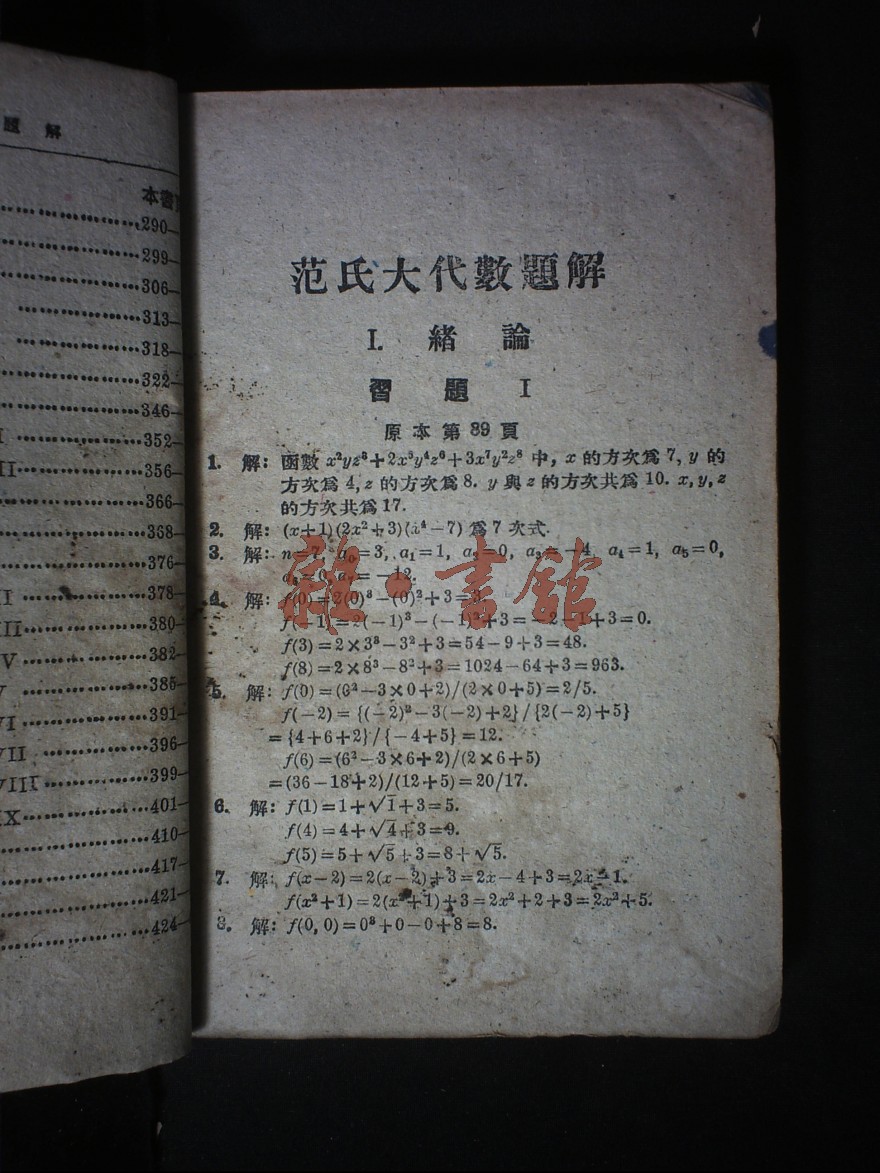 題 解
本書頁
290—
299—
306—
313—
318—
322—
346—
352—
356—
366—
368—
376—
378—
380—
382—
385—
391—
396—
399—
401—
410—
417—
421—
424—
范氏大代數題解
I. 緒 論
習 題 I
原本第 89 頁
1. 解: 函數 x²yz³+2x³y⁴z⁶+3x⁷y²z⁸ 中, x 的方次爲 7, y 的
方次爲 4, z 的方次爲 8. y 與 z 的方次共爲 10. x, y, z
的方次共爲 17.
2. 解: (x+1)(2x²+3)(x⁴−7) 爲 7 次式.
3. 解: n=7, a₀=3, a₁=1, a₂=0, a₃=−4, a₄=1, a₅=0,
a₆=0, a₇=−12.
4. 解: f(0)=2(0)³−(0)²+3=3.
f(−1)=2(−1)³−(−1)²+3=−2−1+3=0.
f(3)=2×3³−3²+3=54−9+3=48.
f(8)=2×8³−8²+3=1024−64+3=963.
5. 解: f(0)=(0²−3×0+2)/(2×0+5)=2/5.
f(−2)={(−2)²−3(−2)+2}/{2(−2)+5}
={4+6+2}/{−4+5}=12.
f(6)=(6²−3×6+2)/(2×6+5)
=(36−18+2)/(12+5)=20/17.
6. 解: f(1)=1+√1+3=5.
f(4)=4+√4+3=9.
f(5)=5+√5+3=8+√5.
7. 解: f(x−2)=2(x−2)+3=2x−4+3=2x−1.
f(x²+1)=2(x²+1)+3=2x²+2+3=2x²+5.
8. 解: f(0, 0)=0³+0−0+8=8.
雜·書館